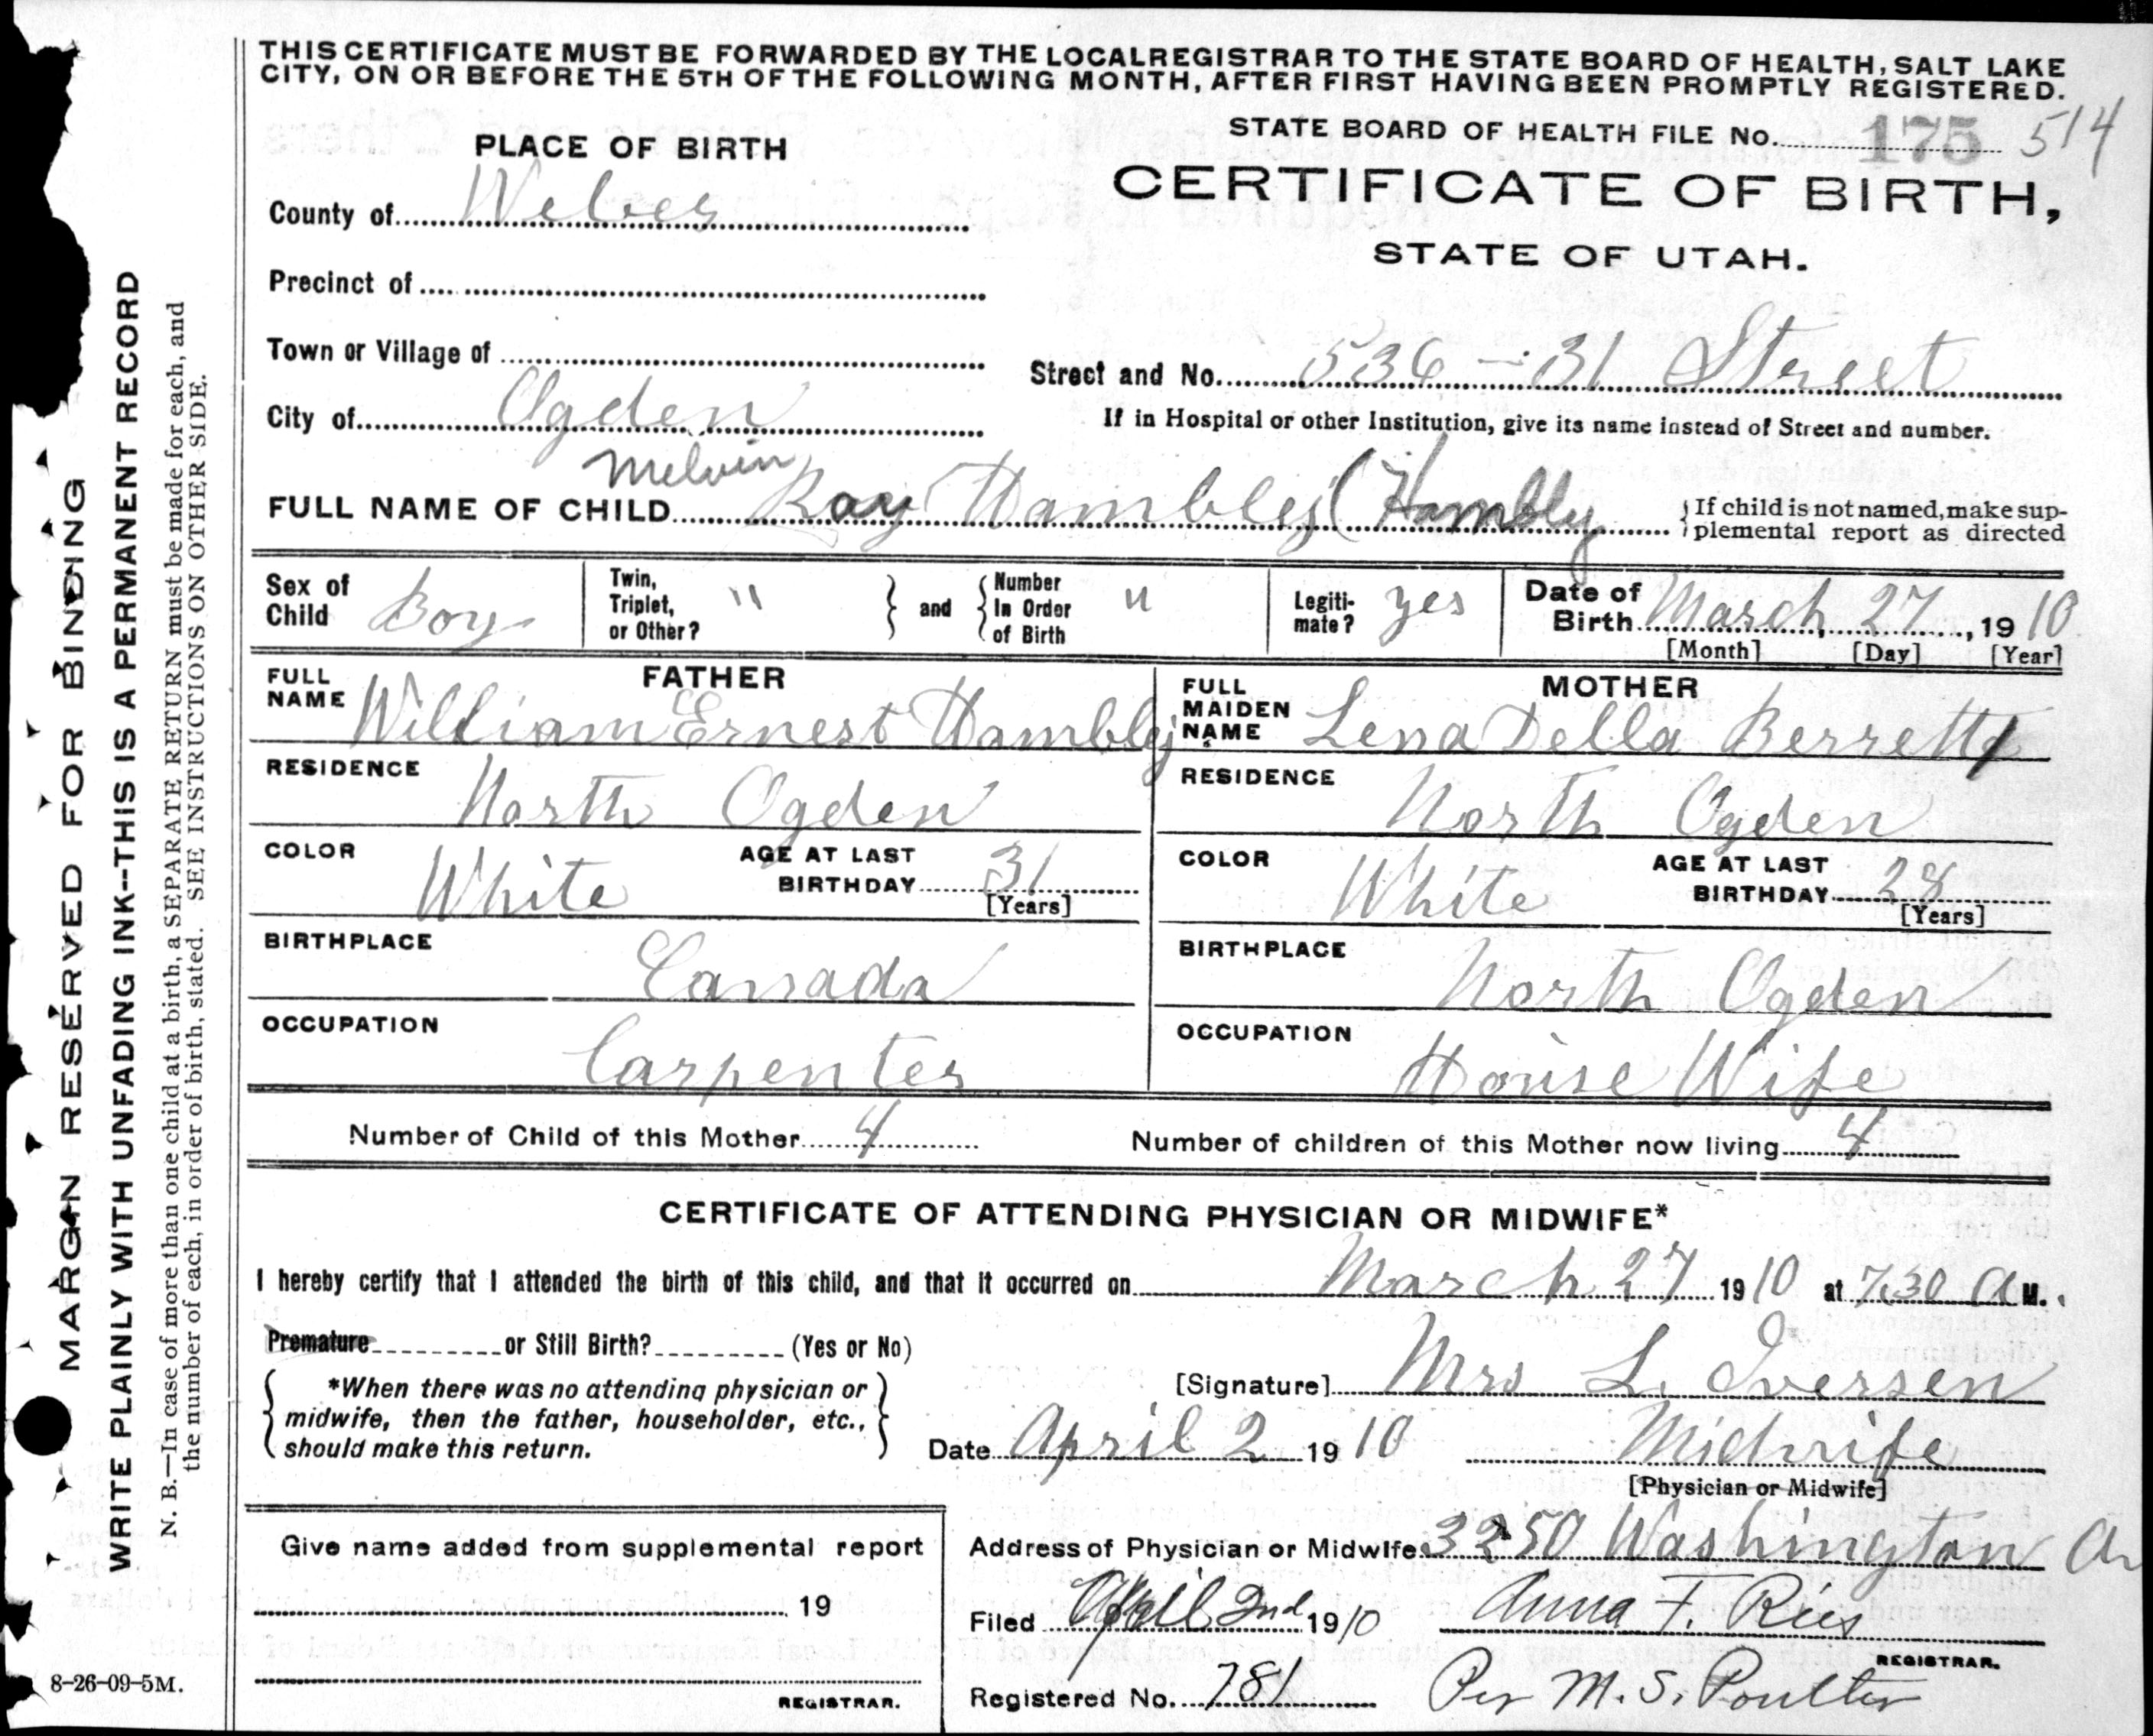 THIS CERTIFICATE MUST BE FORWARDED BY THE LOCAL REGISTRAR TO THE STATE BOARD OF HEALTH, SALT LAKE
CITY, ON OR BEFORE THE 5TH OF THE FOLLOWING MONTH, AFTER FIRST HAVING BEEN PROMPTLY REGISTERED.
STATE BOARD OF HEALTH FILE No. 175 514
PLACE OF BIRTH
CERTIFICATE OF BIRTH,
STATE OF UTAH.
County of Weber
Precinct of
Town or Village of
Street and No. 536 - 31 Street
City of Ogden
If in Hospital or other Institution, give its name instead of Street and number.
Melvin
FULL NAME OF CHILD Ray Hambley (Hambly
If child is not named, make sup-
plemental report as directed
Sex of Child Boy
Twin, Triplet, or Other? "
and Number In Order of Birth "
Legiti-mate? yes
Date of Birth March 27, 1910
[Month] [Day] [Year]
FATHER
FULL NAME William Ernest Hambley
RESIDENCE North Ogden
COLOR White
AGE AT LAST BIRTHDAY 31
[Years]
BIRTHPLACE Canada
OCCUPATION Carpenter
MOTHER
FULL MAIDEN NAME Lena Della Berrett
RESIDENCE North Ogden
COLOR White
AGE AT LAST BIRTHDAY 28
[Years]
BIRTHPLACE North Ogden
OCCUPATION House Wife
Number of Child of this Mother 4
Number of children of this Mother now living 4
CERTIFICATE OF ATTENDING PHYSICIAN OR MIDWIFE*
I hereby certify that I attended the birth of this child, and that it occurred on March 27 1910 at 7.30 A M.
Premature or Still Birth? (Yes or No)
*When there was no attending physician or
midwife, then the father, householder, etc.,
should make this return.
[Signature] Mrs L. Iversen
Date April 2 1910 Midwife
[Physician or Midwife]
Give name added from supplemental report
19
REGISTRAR.
Address of Physician or Midwife 3250 Washington Av
Filed April 2nd 1910 Anna F. Ries
REGISTRAR.
Registered No. 781 Per M. S. Poulter
MARGIN RESERVED FOR BINDING
WRITE PLAINLY WITH UNFADING INK--THIS IS A PERMANENT RECORD
N. B.—In case of more than one child at a birth, a SEPARATE RETURN must be made for each, and
the number of each, in order of birth, stated. SEE INSTRUCTIONS ON OTHER SIDE.
8-26-09-5M.